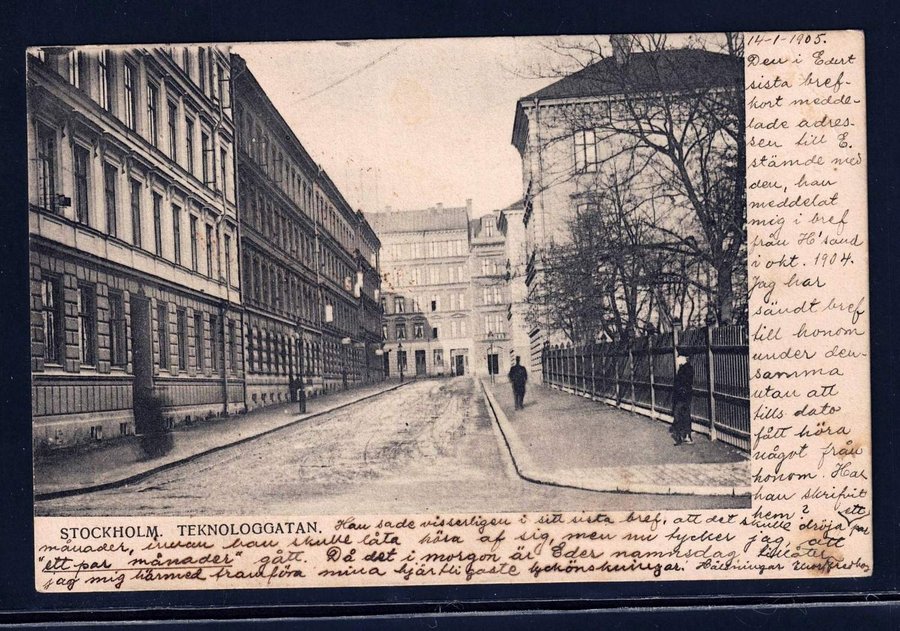 14-1-1905.
Den i Edert
sista bref-
kort medde-
lade adres-
sen till E.
stämde med
den, han
meddelat
mig i bref
från H'sand
i okt. 1904.
Jag har
sändt bref
till honom
under den-
samma
utan att
tills dato
fått höra
något från
honom. Har
han skrifvit
hem?
STOCKHOLM. TEKNOLOGGATAN.
Han sade visserligen i sitt sista bref, att det skulle dröja ett par
månader, innan han skulle låta höra af sig, men nu tycker jag, att
"ett par månader" gått. Då det i morgon är Eder namnsdag tillåter
jag mig härmed framföra mina hjärtligaste lyckönskningar. Hälsningar